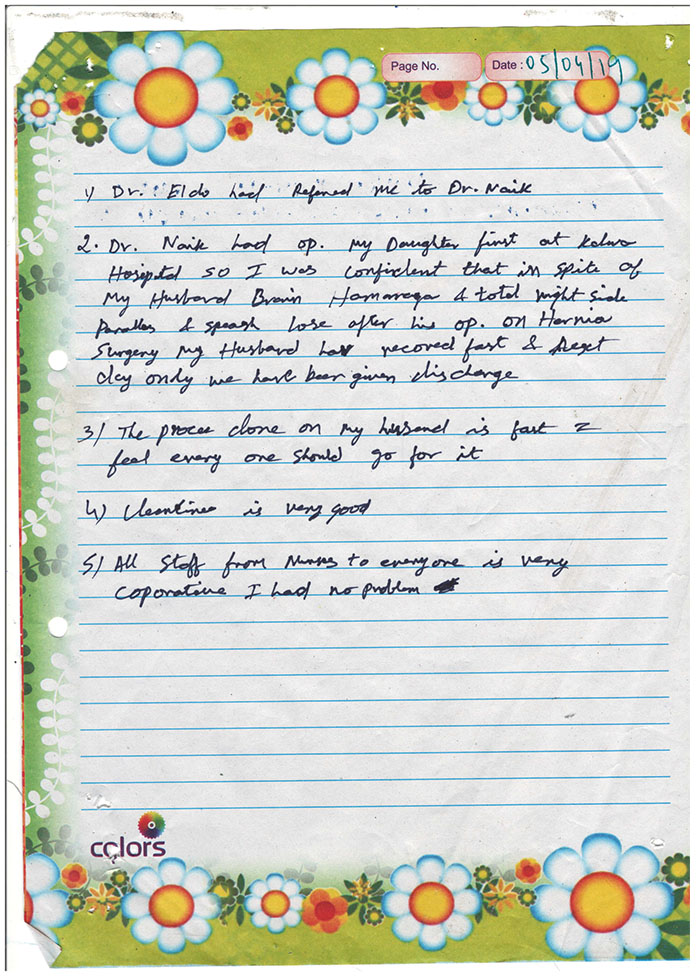 Page No.
Date : 05/04/19
1) Dr. Eldo had Refered me to Dr. Naik
2. Dr. Naik had op. my Daughter first at Kalwa
Hospital so I was confident that in spite of
My Husband Brain Hamarrega & total right side
Paralles & speash lose after his op. on Hernia
Surgery my Husband has recored fast &
day only we have been given discharge
3) The proces done on my husband is fast
feel every one should go for it
4) Cleantines is very good
5) All Staff from Nurses to everyone is very
coporative I had no problem
colors